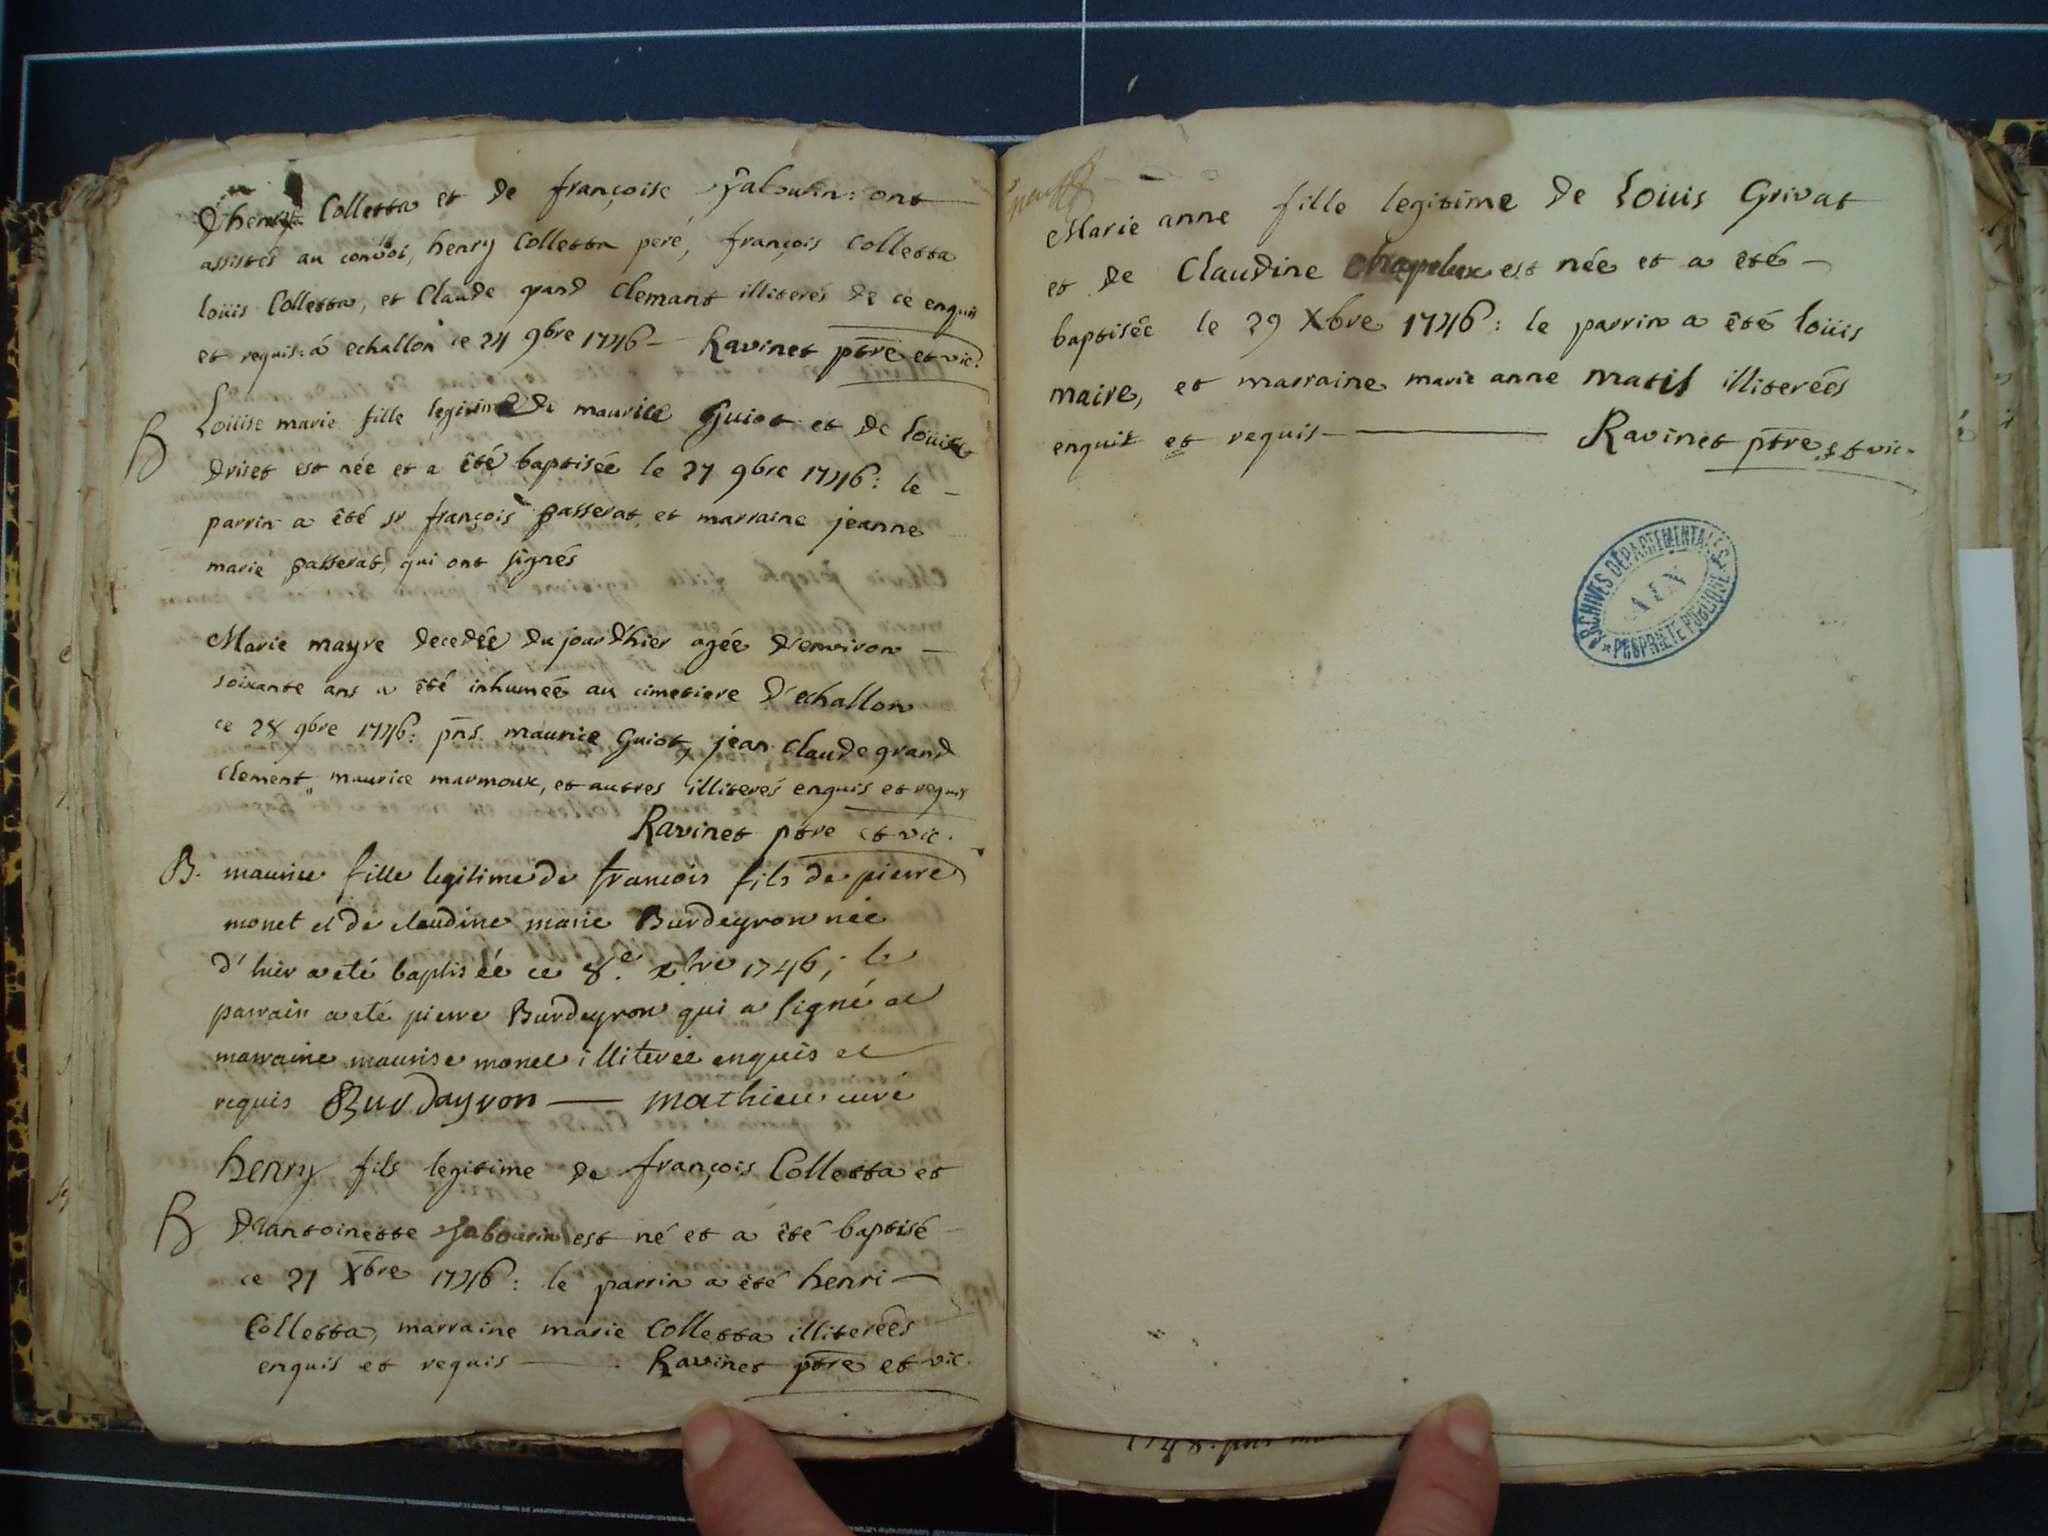 D'henry Colletta et de françoise Jabouin: ont
assistés au convoi, henry Colletta peré, françois Colletta
loüis Colletta, et Claude grand Clemant illiterés de ce enquis
et requis: á echallon ce 24 9bre 1746 — Ravinet ptre et vic.
B Loüise marie fille legitime de maurice Guiot et de loüise
Druet est née et a êté baptisée le 27 9bre 1746: le —
parrin a êté sr françois passerat, et marraine jeanne
marie passerat, qui ont signés
Marie mayre decedée du jour d'hier agée d'environ —
soixante ans a êté inhumée au cimetiere d'echallon
ce 28 9bre 1746: pns. maurice Guiot, jean Claude grand
Clement, maurice marmoux, et autres illiterés enquis et requis
Ravinet ptre et vic.
B. maurice fille legitime de francois fils de pierre
monet et de claudine marie Burdeyron née
d'hier a eté baptisée ce 8e. xbre 1746; le
parrain a eté pierre Burdeyron qui a signé et
marraine maurise monet illiterée enquis et
requis Burdayron — mathieu curé
henry fils legitime de françois Colletta et
B D'antoinette Jabouin est né et a êté baptisé
ce 21 Xbre 1746: le parrin a êté henri —
Colletta, marraine marie Colletta illiterées
enquis et requis — Ravinet ptre et vic.
Marie anne fille legitime de Loüis Grivat
et de Claudine Chapelux est née et a êté —
baptisée le 29 Xbre 1746: le parrin a êté loüis
maire, et marraine marie anne matil illiterées
enquis et requis — Ravinet ptre et vic.
ARCHIVES DÉPARTEMENTALES
AIN
PROPRIÉTÉ PUBLIQUE